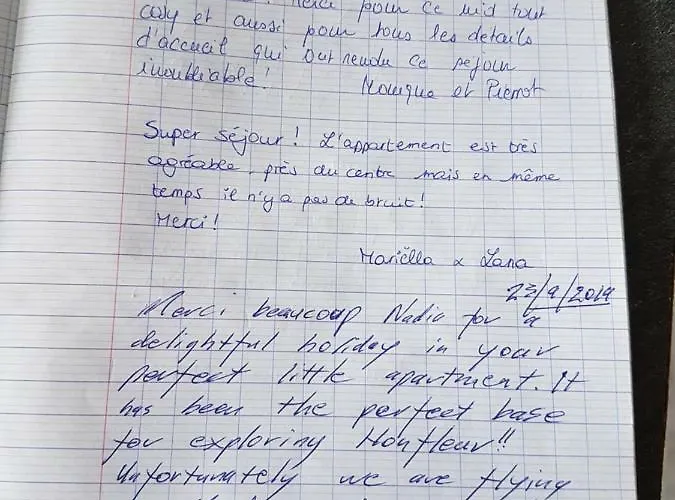 Merci pour ce nid tout
cosy et aussi pour tous les détails
d'accueil qui ont rendu ce séjour
inoubliable! Monique et Pierrot
Super séjour! L'appartement est très
agréable, près du centre mais en même
temps il n'y a pas de bruit!
Merci!
Mariëlla & Lana
23/9/2019
Merci beaucoup Nadia for a
delightful holiday in your
perfect little apartment. It
has been the perfect base
for exploring Honfleur!!
Unfortunately we are flying